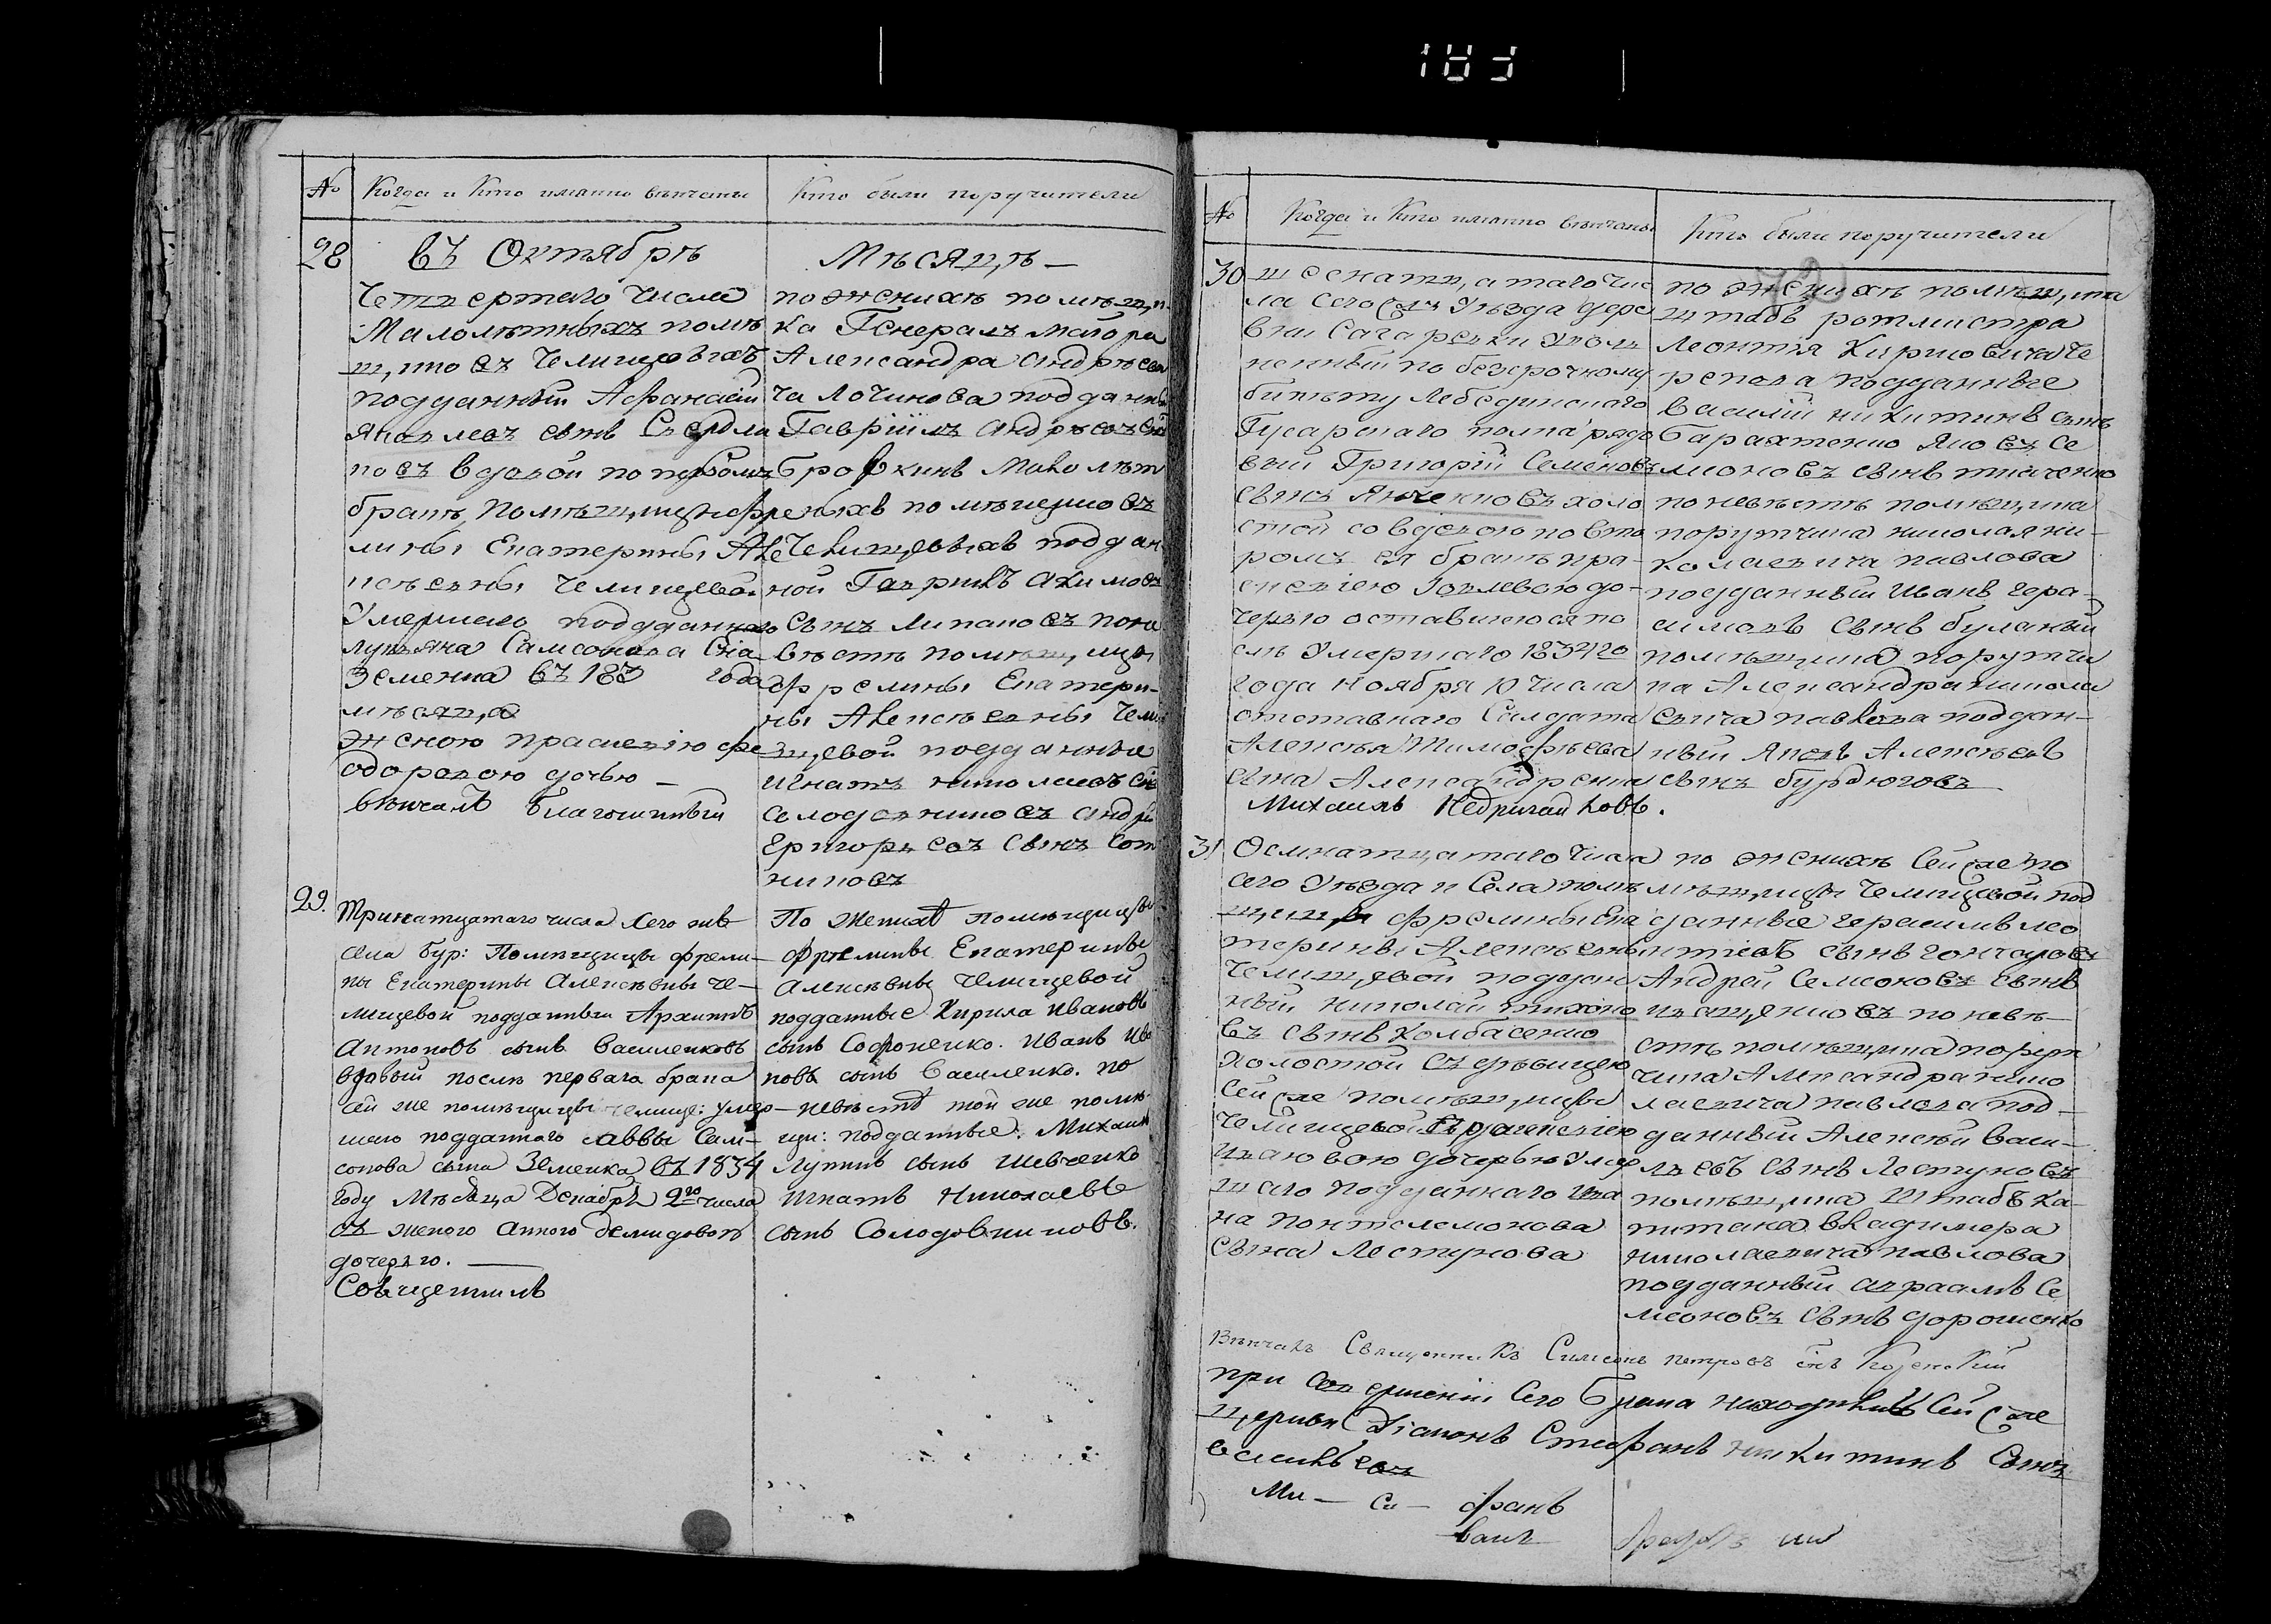 № Когда и Кто имянно вѣнчаны
Кто были поручители
28
въ Октябрѣ
Мѣсяцѣ —
Четвертаго Числа
Малолѣтныхъ помѣ
щиковъ Челищевыхъ
подданный Афанасій
Яковлевъ сынъ
вдовой по первомъ
бракѣ помѣщицы фре
лины Екатерины Але
ксѣевны Челищевой
Умершаго подданного
Лукьяна Самсонова Сна
Земенка въ 183 года
мѣсяца
женою Праскевію фе
одоровою дочью —
вѣнчалъ благочинный
по женихѣ помѣщи
ка Генералъ маіора
Александра Андрѣеви
ча Логинова подданны
Гавріилъ Андрѣевъ сынъ
Бровкинъ малолѣт
ныхъ помѣщиковъ
Челищевыхъ поддан
ной Гаврилъ Акимовъ
Сынъ Липановъ по не
вѣстѣ помѣщицы
фрелины Екатери-
ны Алексѣевны Чели
щевой подданные
Игнатъ Николаевъ Снъ
Солодовниковъ Андрѣй
Григорьевъ Сынъ Сот
никовъ
29.
Тринатцатаго числа Сего жѣ
села бур: Помѣщицы фрели-
ны Екатерины Алексѣвны Че-
лищевой подданный Архиппъ
Антоновъ сынъ Василенковъ
вдовый послѣ перваго брака
сей же помѣщицы челище: умер-
шаго подданнаго Саввы Сам-
сонова сына Земенка въ 1834
году Мѣсяца Декабря 9го числа
съ женою Анною Демидовою
дочерью. —
Совѣщеннилъ
По Женихѣ помѣщицы
Фрелины Екатерины
Алексѣвны Челищевой
подданные Кирила Ивановъ
сынъ Софроненко. Иванъ Ива
новъ сынъ Василенко. по
невѣстѣ той же помѣ-
щи: подданные. Михаилъ
Лукинъ сынъ Шевченко
Игнатъ Николаевъ
сынъ Солодовниковъ.
№ Когда и Кто имянно вѣнчаны
Кто были поручители
30
шеснатцатаго чис
ла Сего Уѣзда дере
вни Сагаревки уволь
ненный по безсрочному
билету Лебединскаго
Гусарскаго полка рядо
вый Григорій Семеновъ
сынъ Янченковъ холо
стой со вдовою по вто
ромъ ея бракѣ пра-
скевіею Яковлевою до-
черью оставшеюся по
слѣ Умершаго 1834го
года Ноября 10 Числа
отставнаго Салдата
Алексѣя Тимофѣева
сына Александренка
Михаилъ Недригайловъ.
по женихѣ помѣщика
штабъ ротмистра
Леонтія Кириловича Че
репова подданные
Василій никитинъ сынъ
Барахтенко Яковъ Се
меновъ сынъ ткаченко
по невѣстѣ помѣщика
порутчика николая ни-
колаевича павлова
подданный Иванъ гера-
симовъ сынъ буланый
помѣщика порутчи
ка Александра никола
евича павлова поддан-
ный Яковъ Алексѣевъ
сынъ бурдюговъ
31
Осмнатцатаго числа
сего Уѣзда и Села помѣ
щицы фрелины Ека
терины Алексѣевны
Челищевой поддан
ный николай тихоно
въ сынъ Колбасенко
холостой съ дѣвицею
Сей же помѣщицы
Челищевой праскевіею
Ивановою дочерью Умер
шаго подданнаго Ива
на Понтелемонова
Сына Лестунова
по женихѣ Сей же по
мѣщицы Челищевой под
данные герасимъ лео
нтіевъ сынъ гончаровъ
Андрей Семеоновъ сынъ
Изащенковъ по невѣ-
стѣ помѣщика порут
чика Александра нико
лаевича павлова под-
данный Алексѣй васи-
льевъ сынъ Лестуновъ
помѣщика Штабъ ка-
питана владимера
николаевича павлова
подданный авраамъ Се
меоновъ сынъ дорошенко
Вѣнчалъ Священникъ Симеонъ петровъ снъ
при совершеніи Сего брака находился Сей же
церкви Діаконъ Стефанъ никитинъ Сынъ
васильевъ
Ми — Си — фанъ